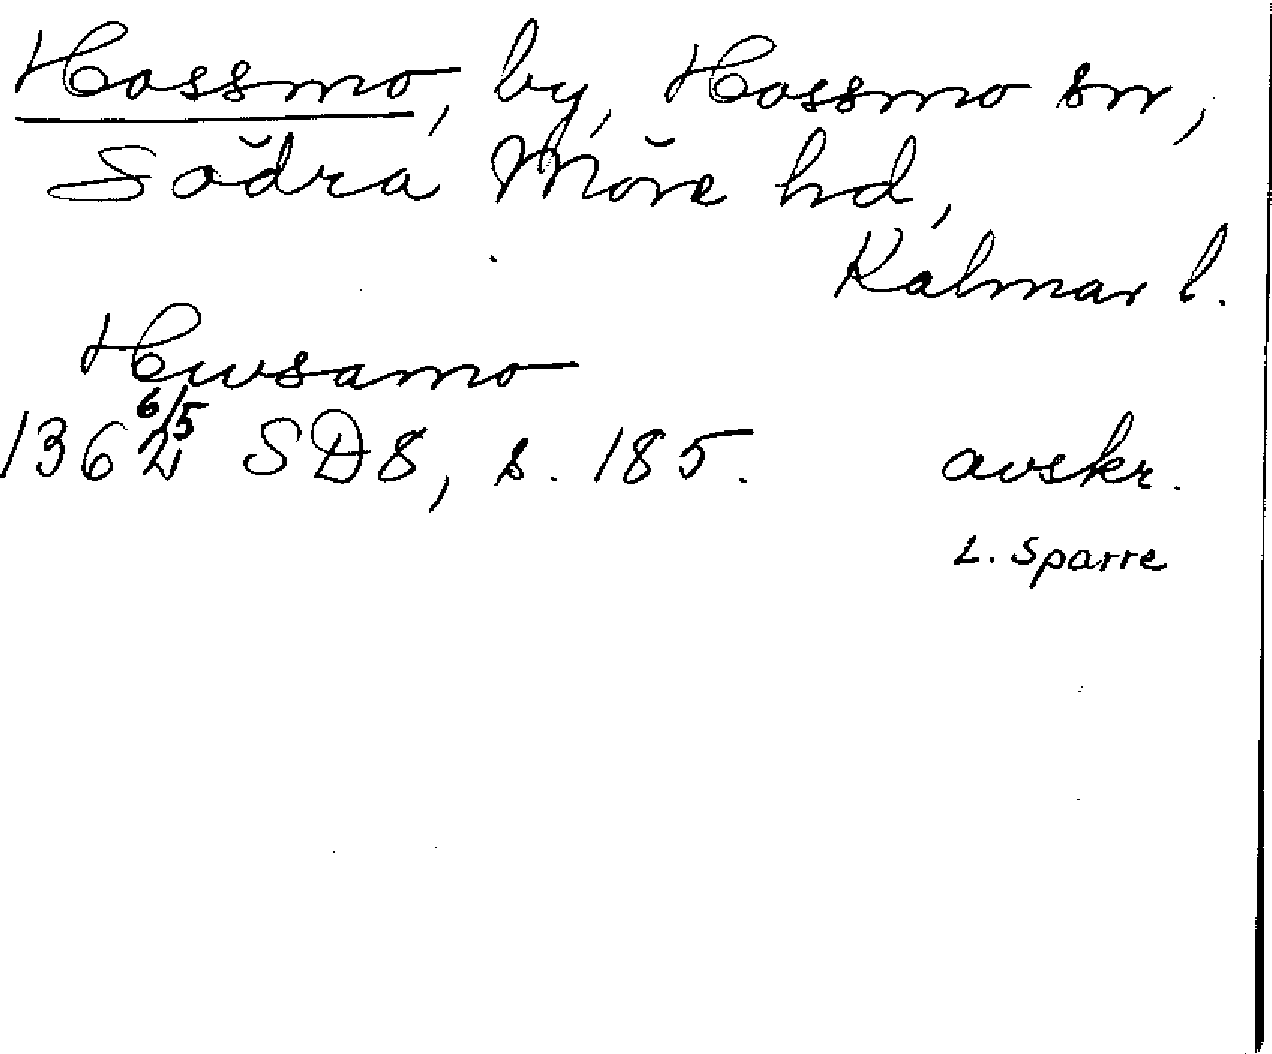 Hossmo, by, Hossmo sn,
Södra Möre hd,
Kalmar l.
Hwsamo
1362 6/5 SD8, s. 185. avskr.
L. Sparre